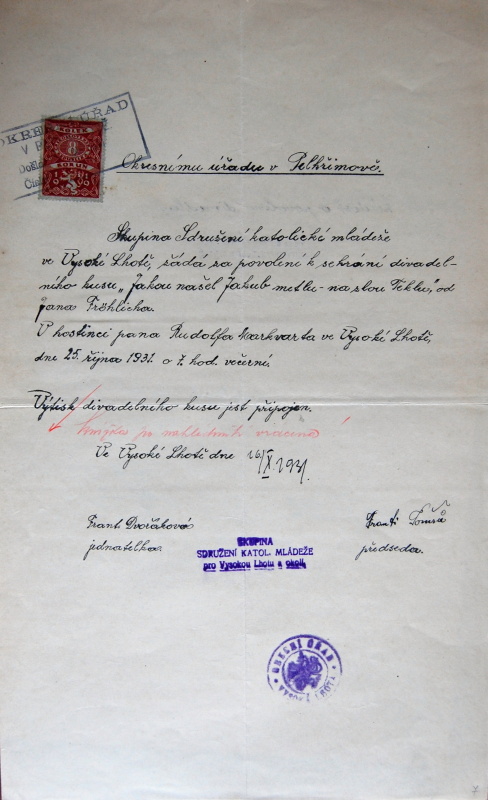 OKRES ÚŘAD
V P
Došlo
KOLEK
8
KORUN
Okresnímu úřadu v Pelhřimově.
Skupina Sdružení katolické mládeže
ve Vysoké Lhotě, žádá za povolení k sehrání divadel-
ního kusu „Jakou našel Jakub metlu - na slou Teklu," od
Jana Fröhlicha.
V hostinci pana Rudolfa Markvarta ve Vysoké Lhotě,
dne 25. října 1931. o 7. hod. večerní.
Výtisk divadelního kusu jest připojen.
po nahlédnutí vrácena
Ve Vysoké Lhotě dne 16/X 1931.
Frant. Dvořáková
jednatelka.
SKUPINA
SDRUŽENÍ KATOL. MLÁDEŽE
pro Vysokou Lhotu a okolí.
předseda.
OBECNÍ ÚŘAD
LHOTA
7